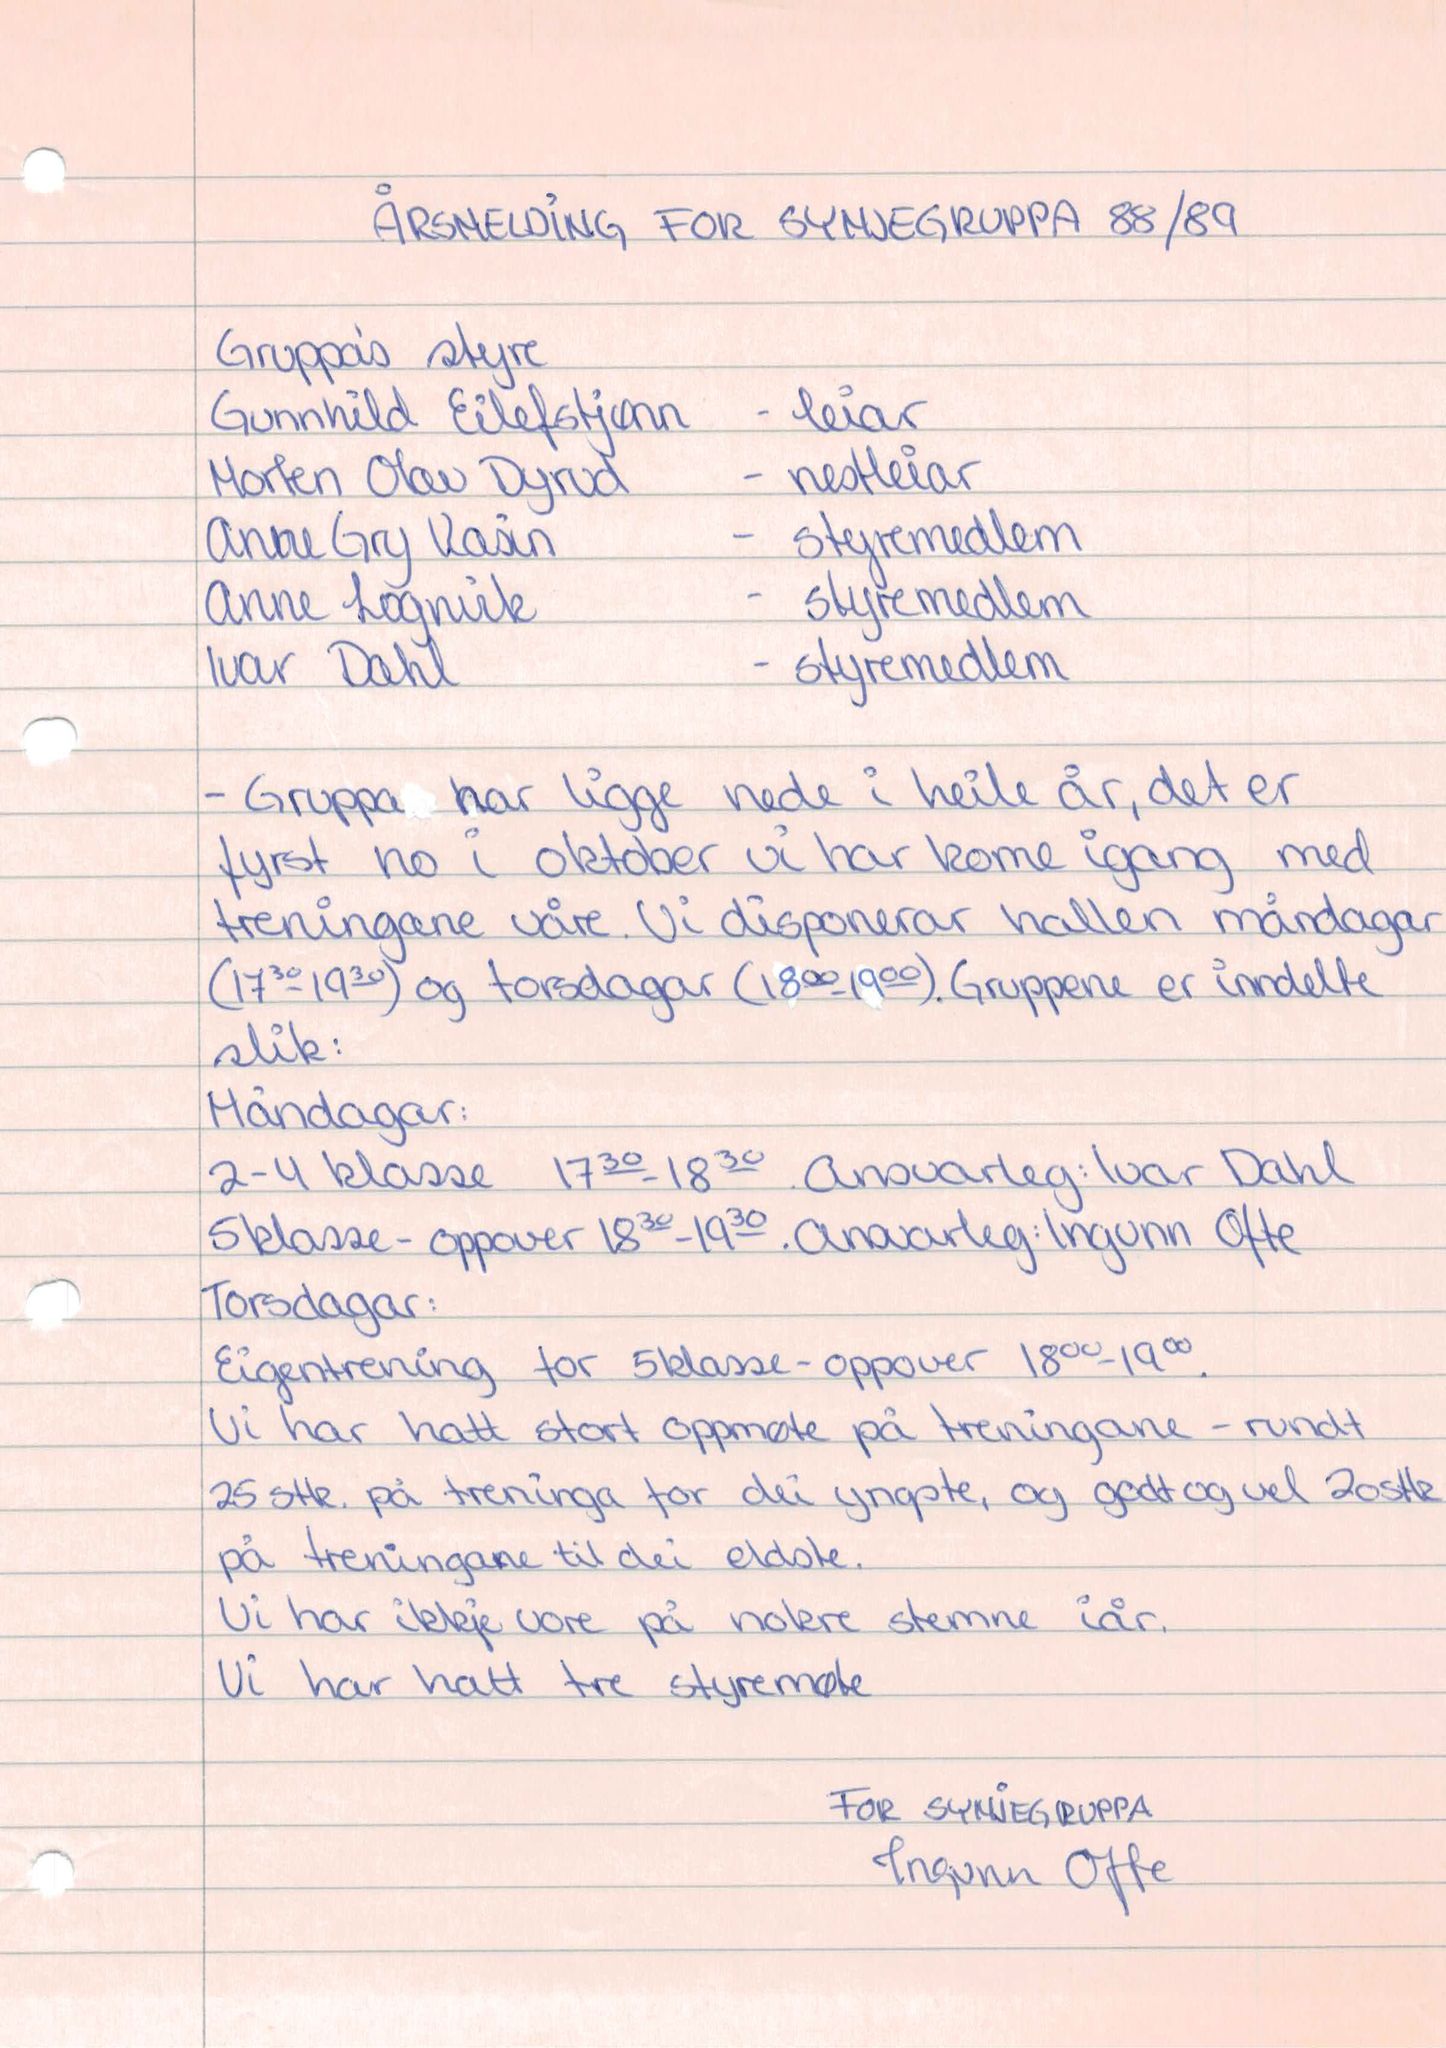 ÅRSMELDING FOR SYMJEGRUPPA 88/89
Gruppa's styre
Gunnhild Eilefstjønn - leiar
Morten Olav Dyrud - nestleiar
Anne Gry Kasin - styremedlem
Anne Lognvik - styremedlem
Ivar Dahl - styremedlem
- Gruppa har ligge nede i heile år, det er
fyrst no i oktober vi har kome igang med
treningane våre. Vi disponerar hallen måndagar
(17³⁰-19³⁰) og torsdagar (18⁰⁰-19⁰⁰). Gruppene er inndelte
slik:
Måndagar:
2-4 klasse 17³⁰-18³⁰. Ansvarleg: Ivar Dahl
5klasse - oppover 18³⁰-19³⁰. Ansvarleg: Ingunn Ofte
Torsdagar:
Eigentrening for 5klasse - oppover 18⁰⁰-19⁰⁰.
Vi har hatt stort oppmøte på treningane - rundt
25 stk. på treninga for dei yngste, og godt og vel 20stk
på treningane til dei eldste.
Vi har ikkje vore på nokre stemne i år.
Vi har hatt tre styremøte
FOR SYMJEGRUPPA
Ingunn Ofte